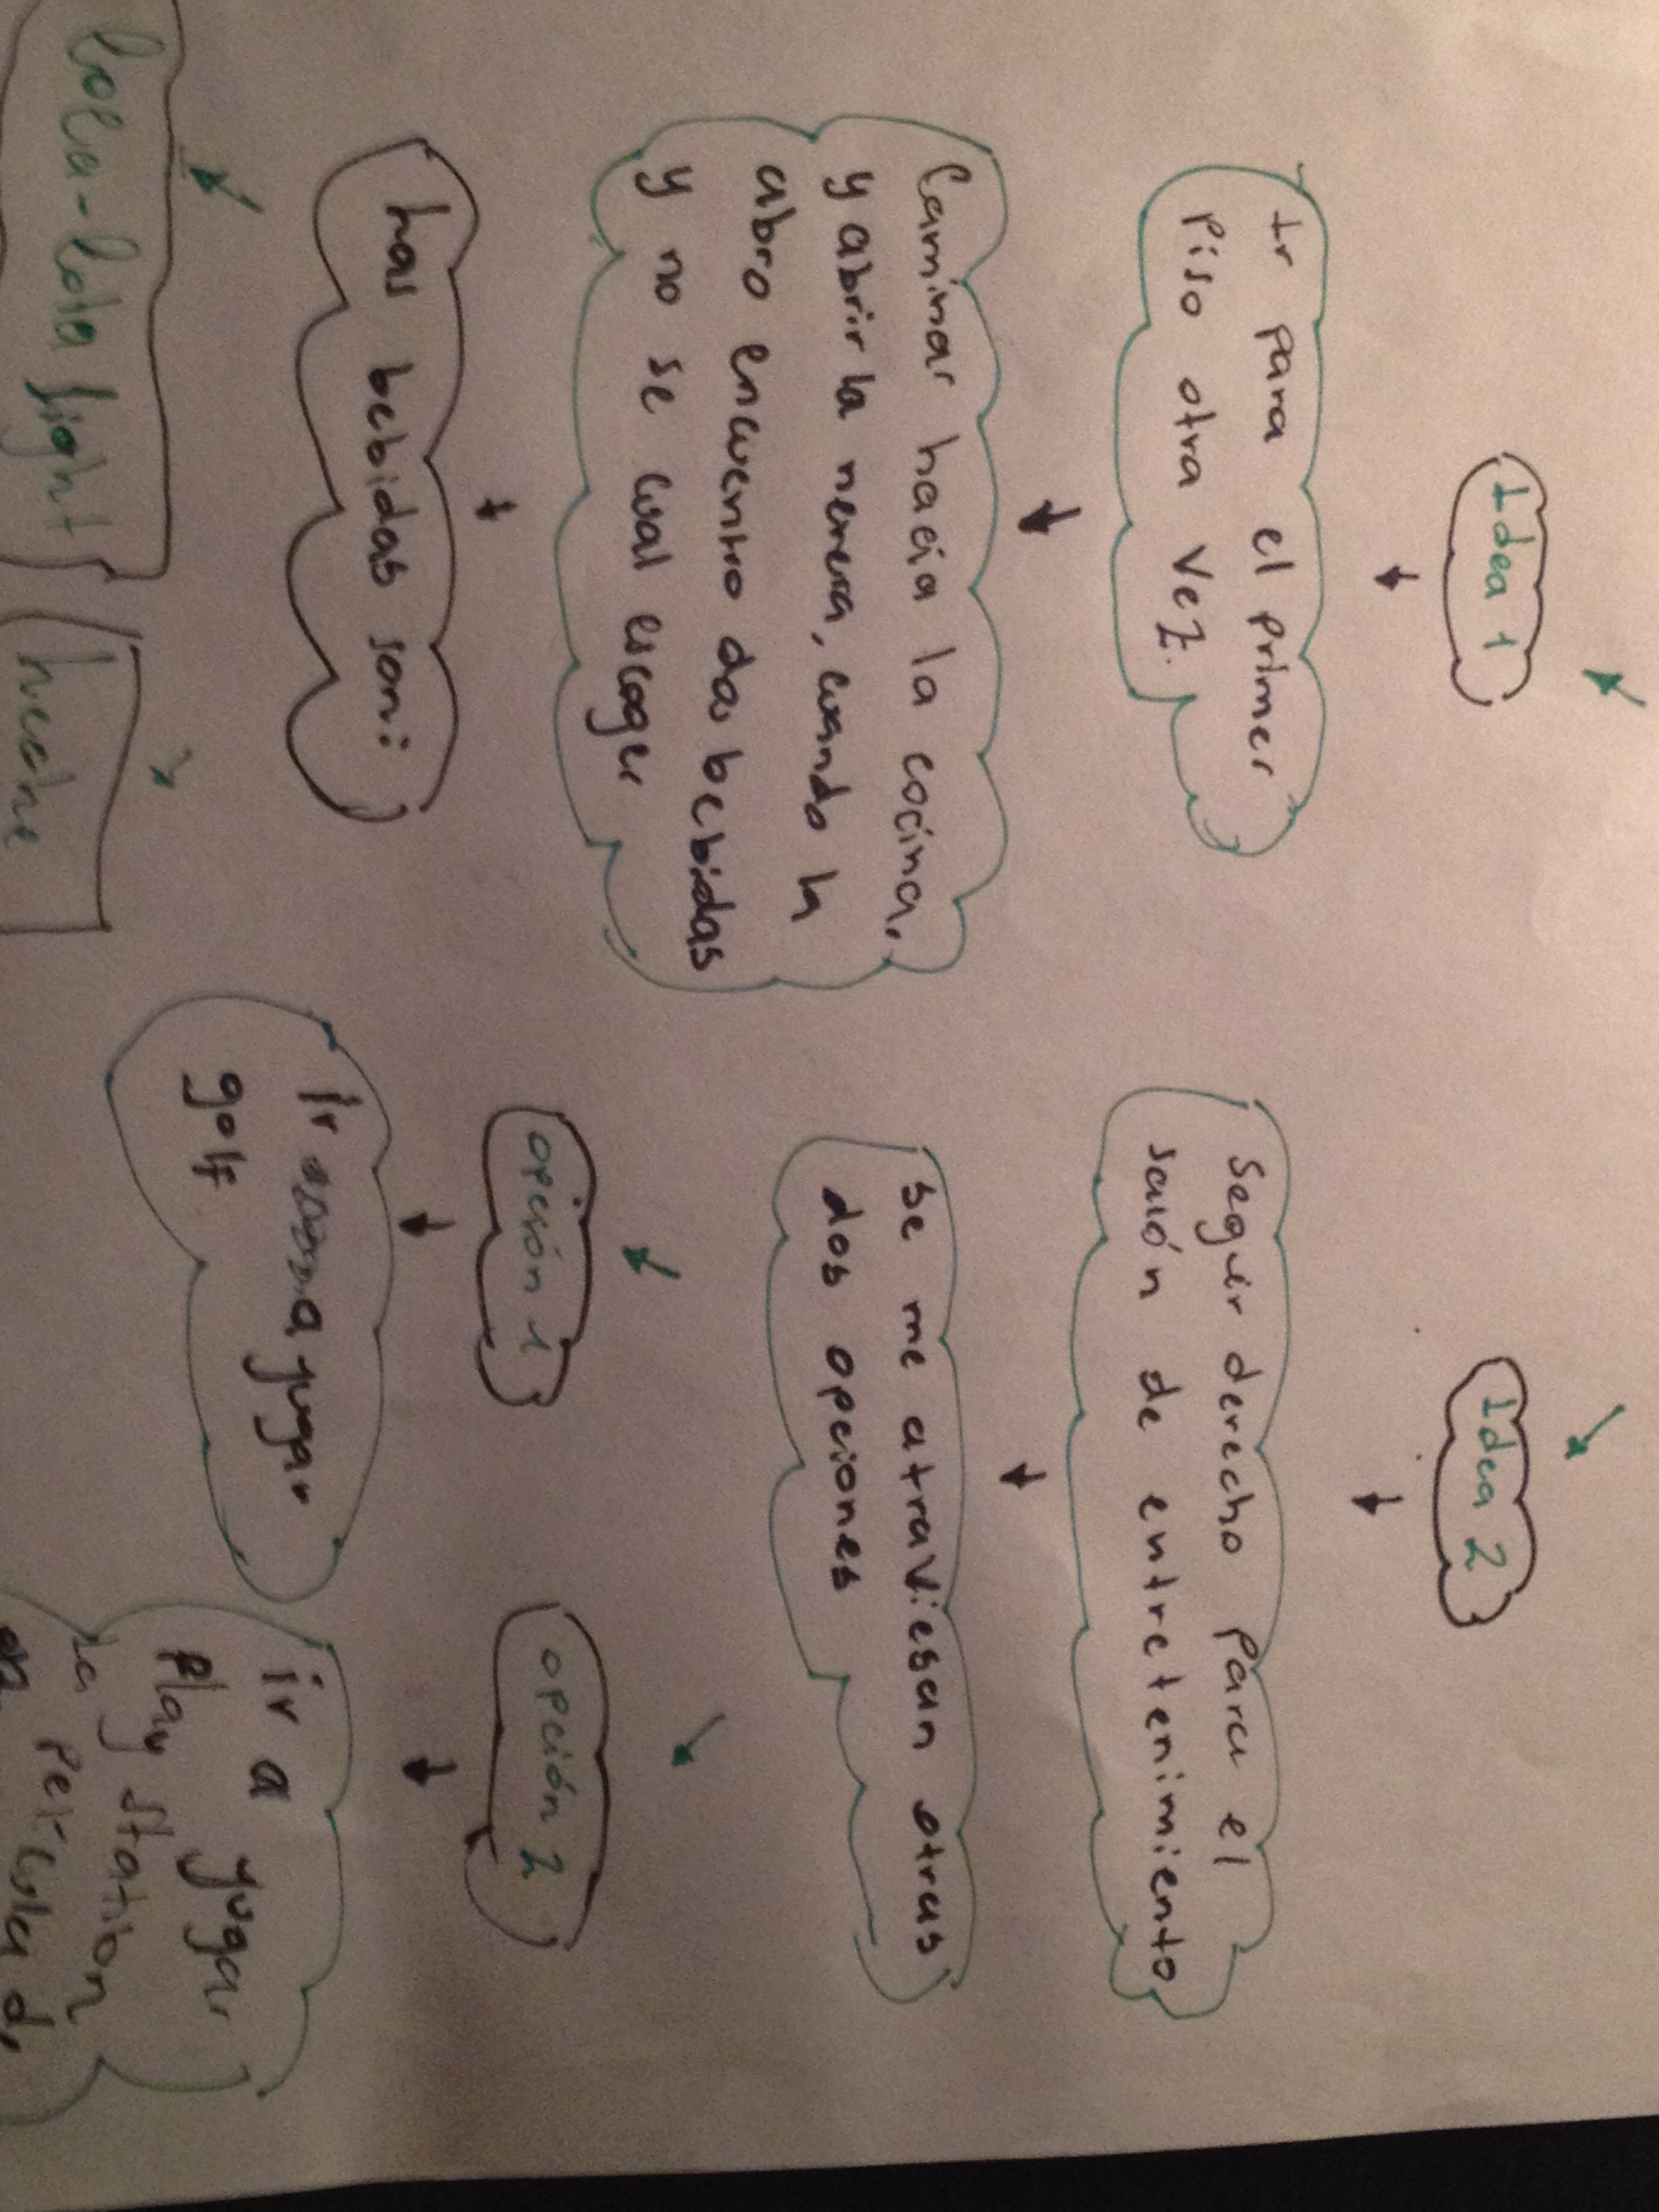 Idea 1
Ir para el primer
Piso otra vez.
Caminar hacia la cocina,
y abrir la nevera, cuando la
abro encuentro dos bebidas
y no se cual escoger
Las bebidas son:
Coca-Cola light
Leche
Idea 2
Seguir derecho para el
salón de entretenimiento
Se me atraviesan otras
dos opciones
opción 1
Ir a jugar
golf
opción 2
ir a jugar
Play station
Película d